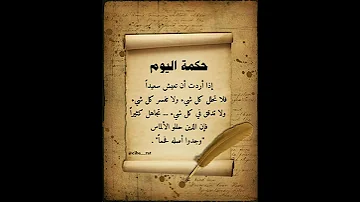 حكمة اليوم
إذا أردت أن تعيش سعيداً
فلا تحلل كل شيء ولا تفسر كل شيء
ولا تدقق في كل شيء ... تجاهل كثيراً
فإن الذين حللو الألماس
"وجدوا أصله فحماً" .